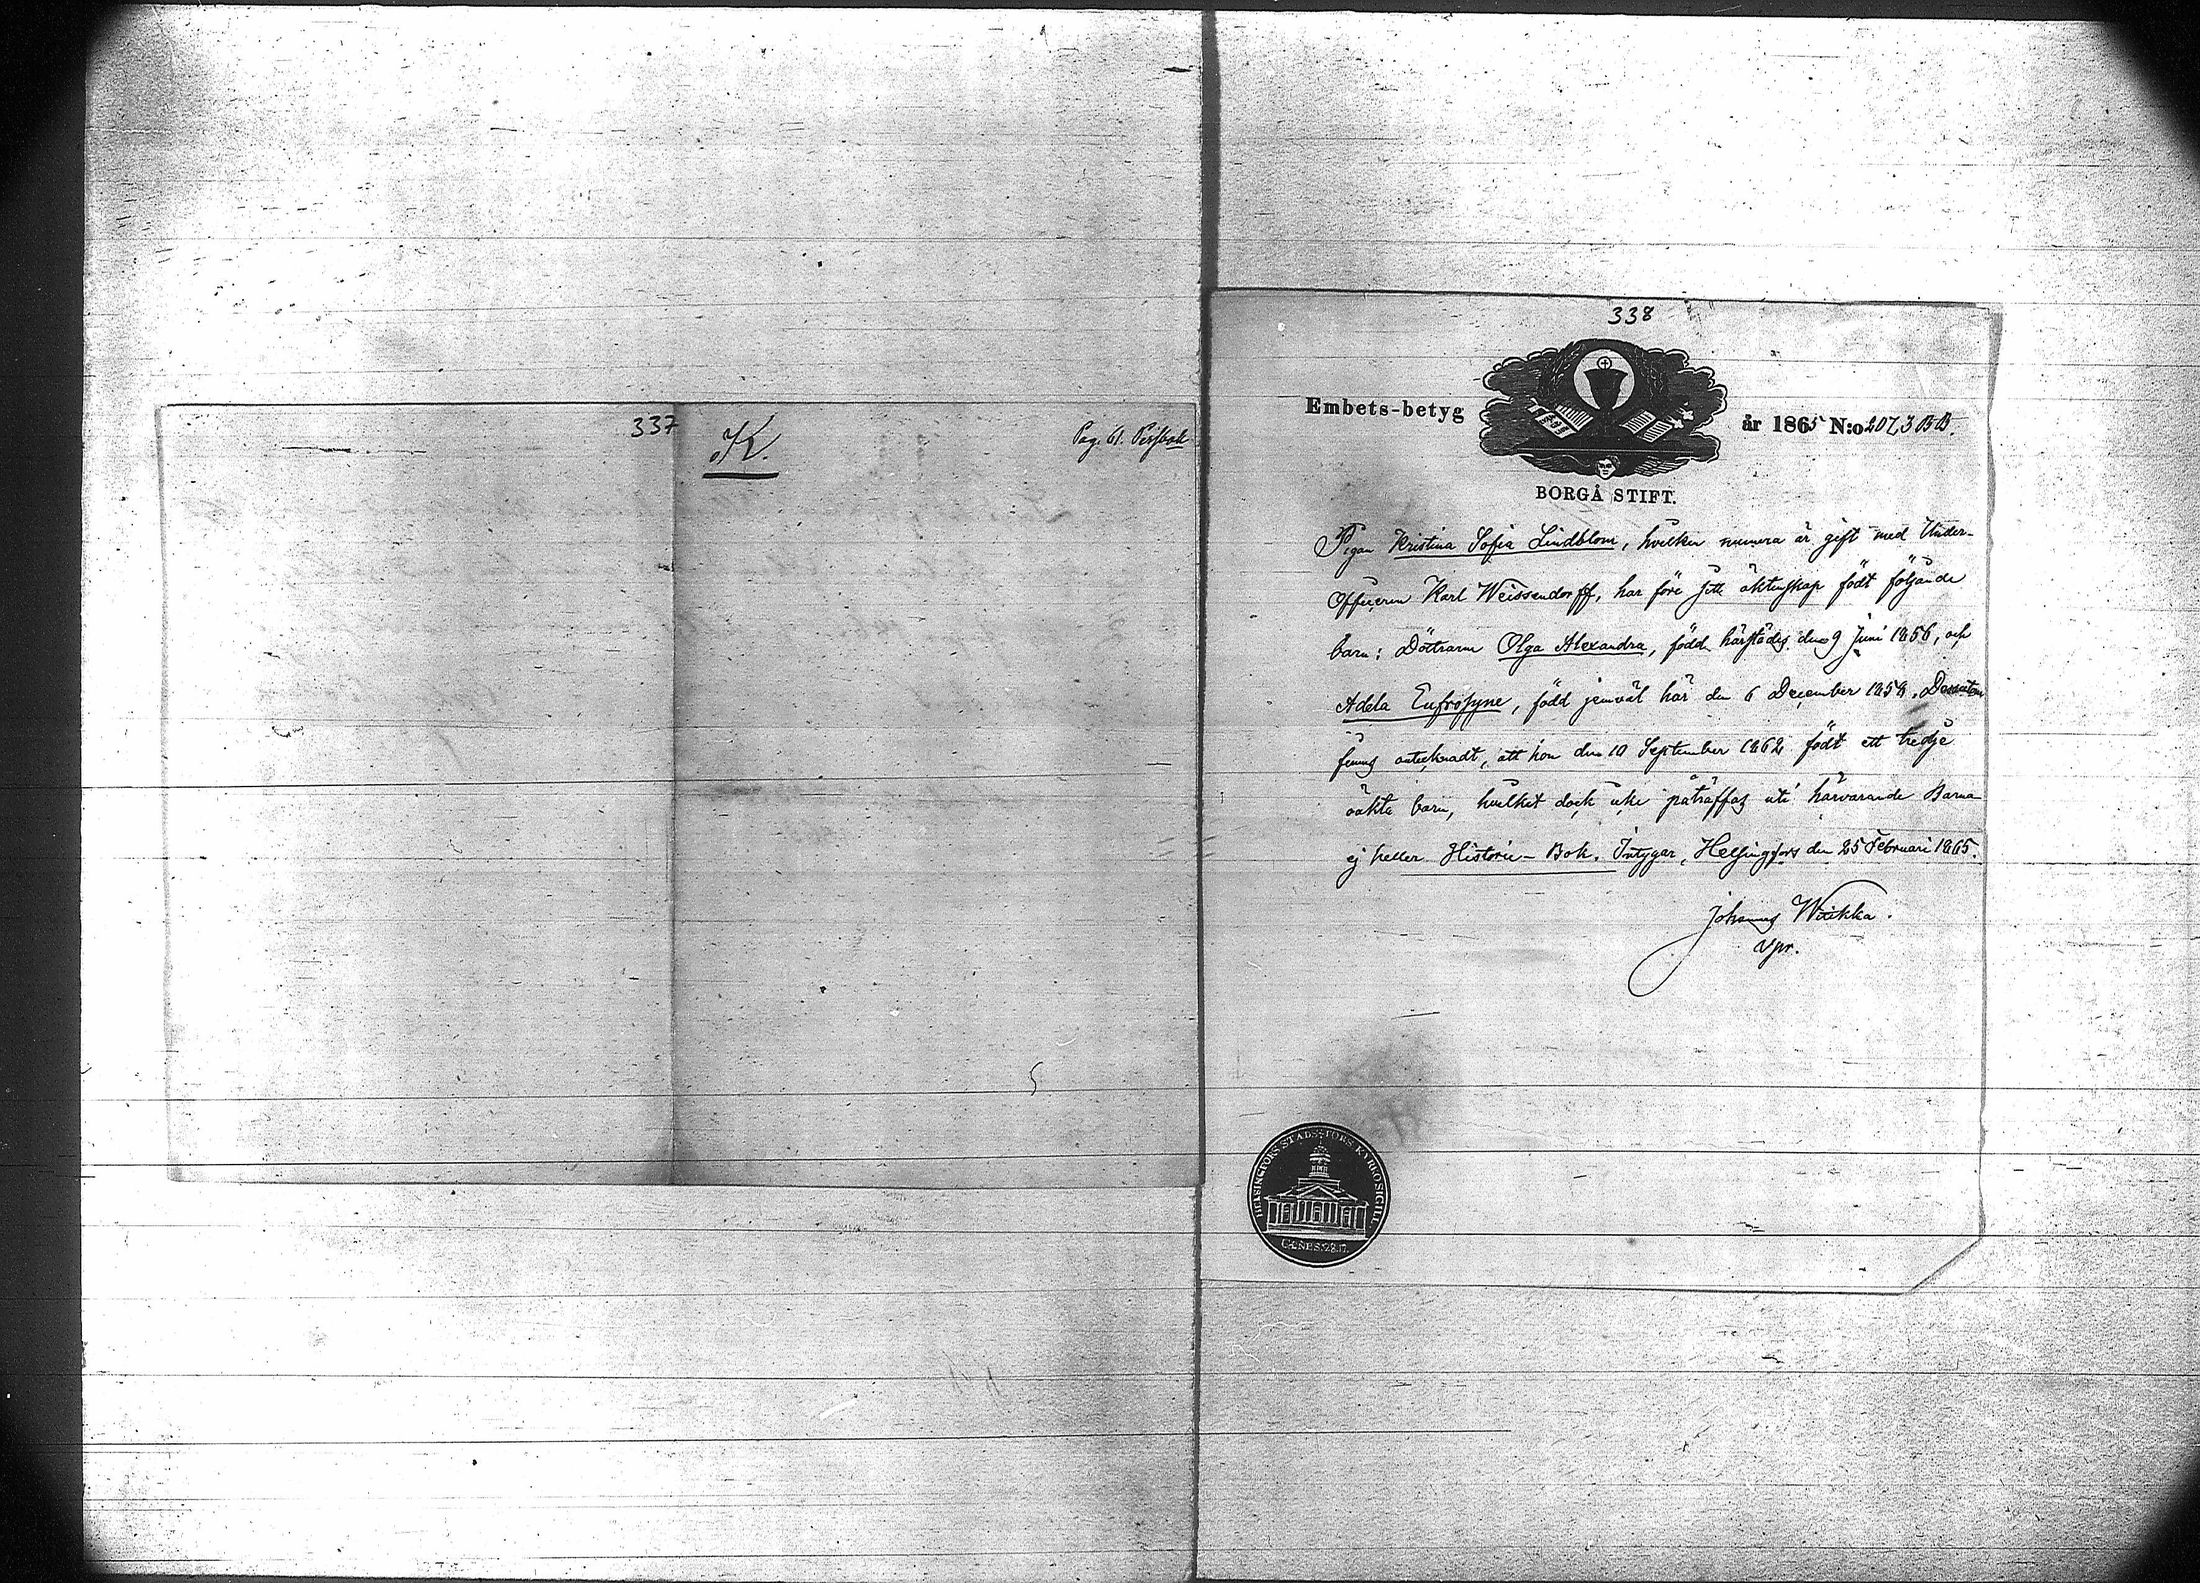 337
K.
Pag. 61.
338
Embets-betyg
år 1865 N:o 207,3 BB.
BORGÅ STIFT.
Pigan Kristina Sofia Lindblom, hvilken numera är gift med Under-
officeren Karl Weissendorff, har före sitt äktenskap födt följande
barn: Döttrarne Olga Alexandra, född härstädes den 9 Juni 1856, och
Adela Eufrosyne, född jemväl här den 6 December 1858. Dessutom
finnes antecknadt, att hon den 10 September 1862 födt ett tredje
oäkta barn, hvilket dock icke påträffas uti härvarande Barna-
ej heller Historie-Bok. Intygar, Helsingfors den 25 Februari 1865.
Johannes Wiikka.
Vpr.
HELSINGFORS STADS FÖRS. KYRKOSIGILL